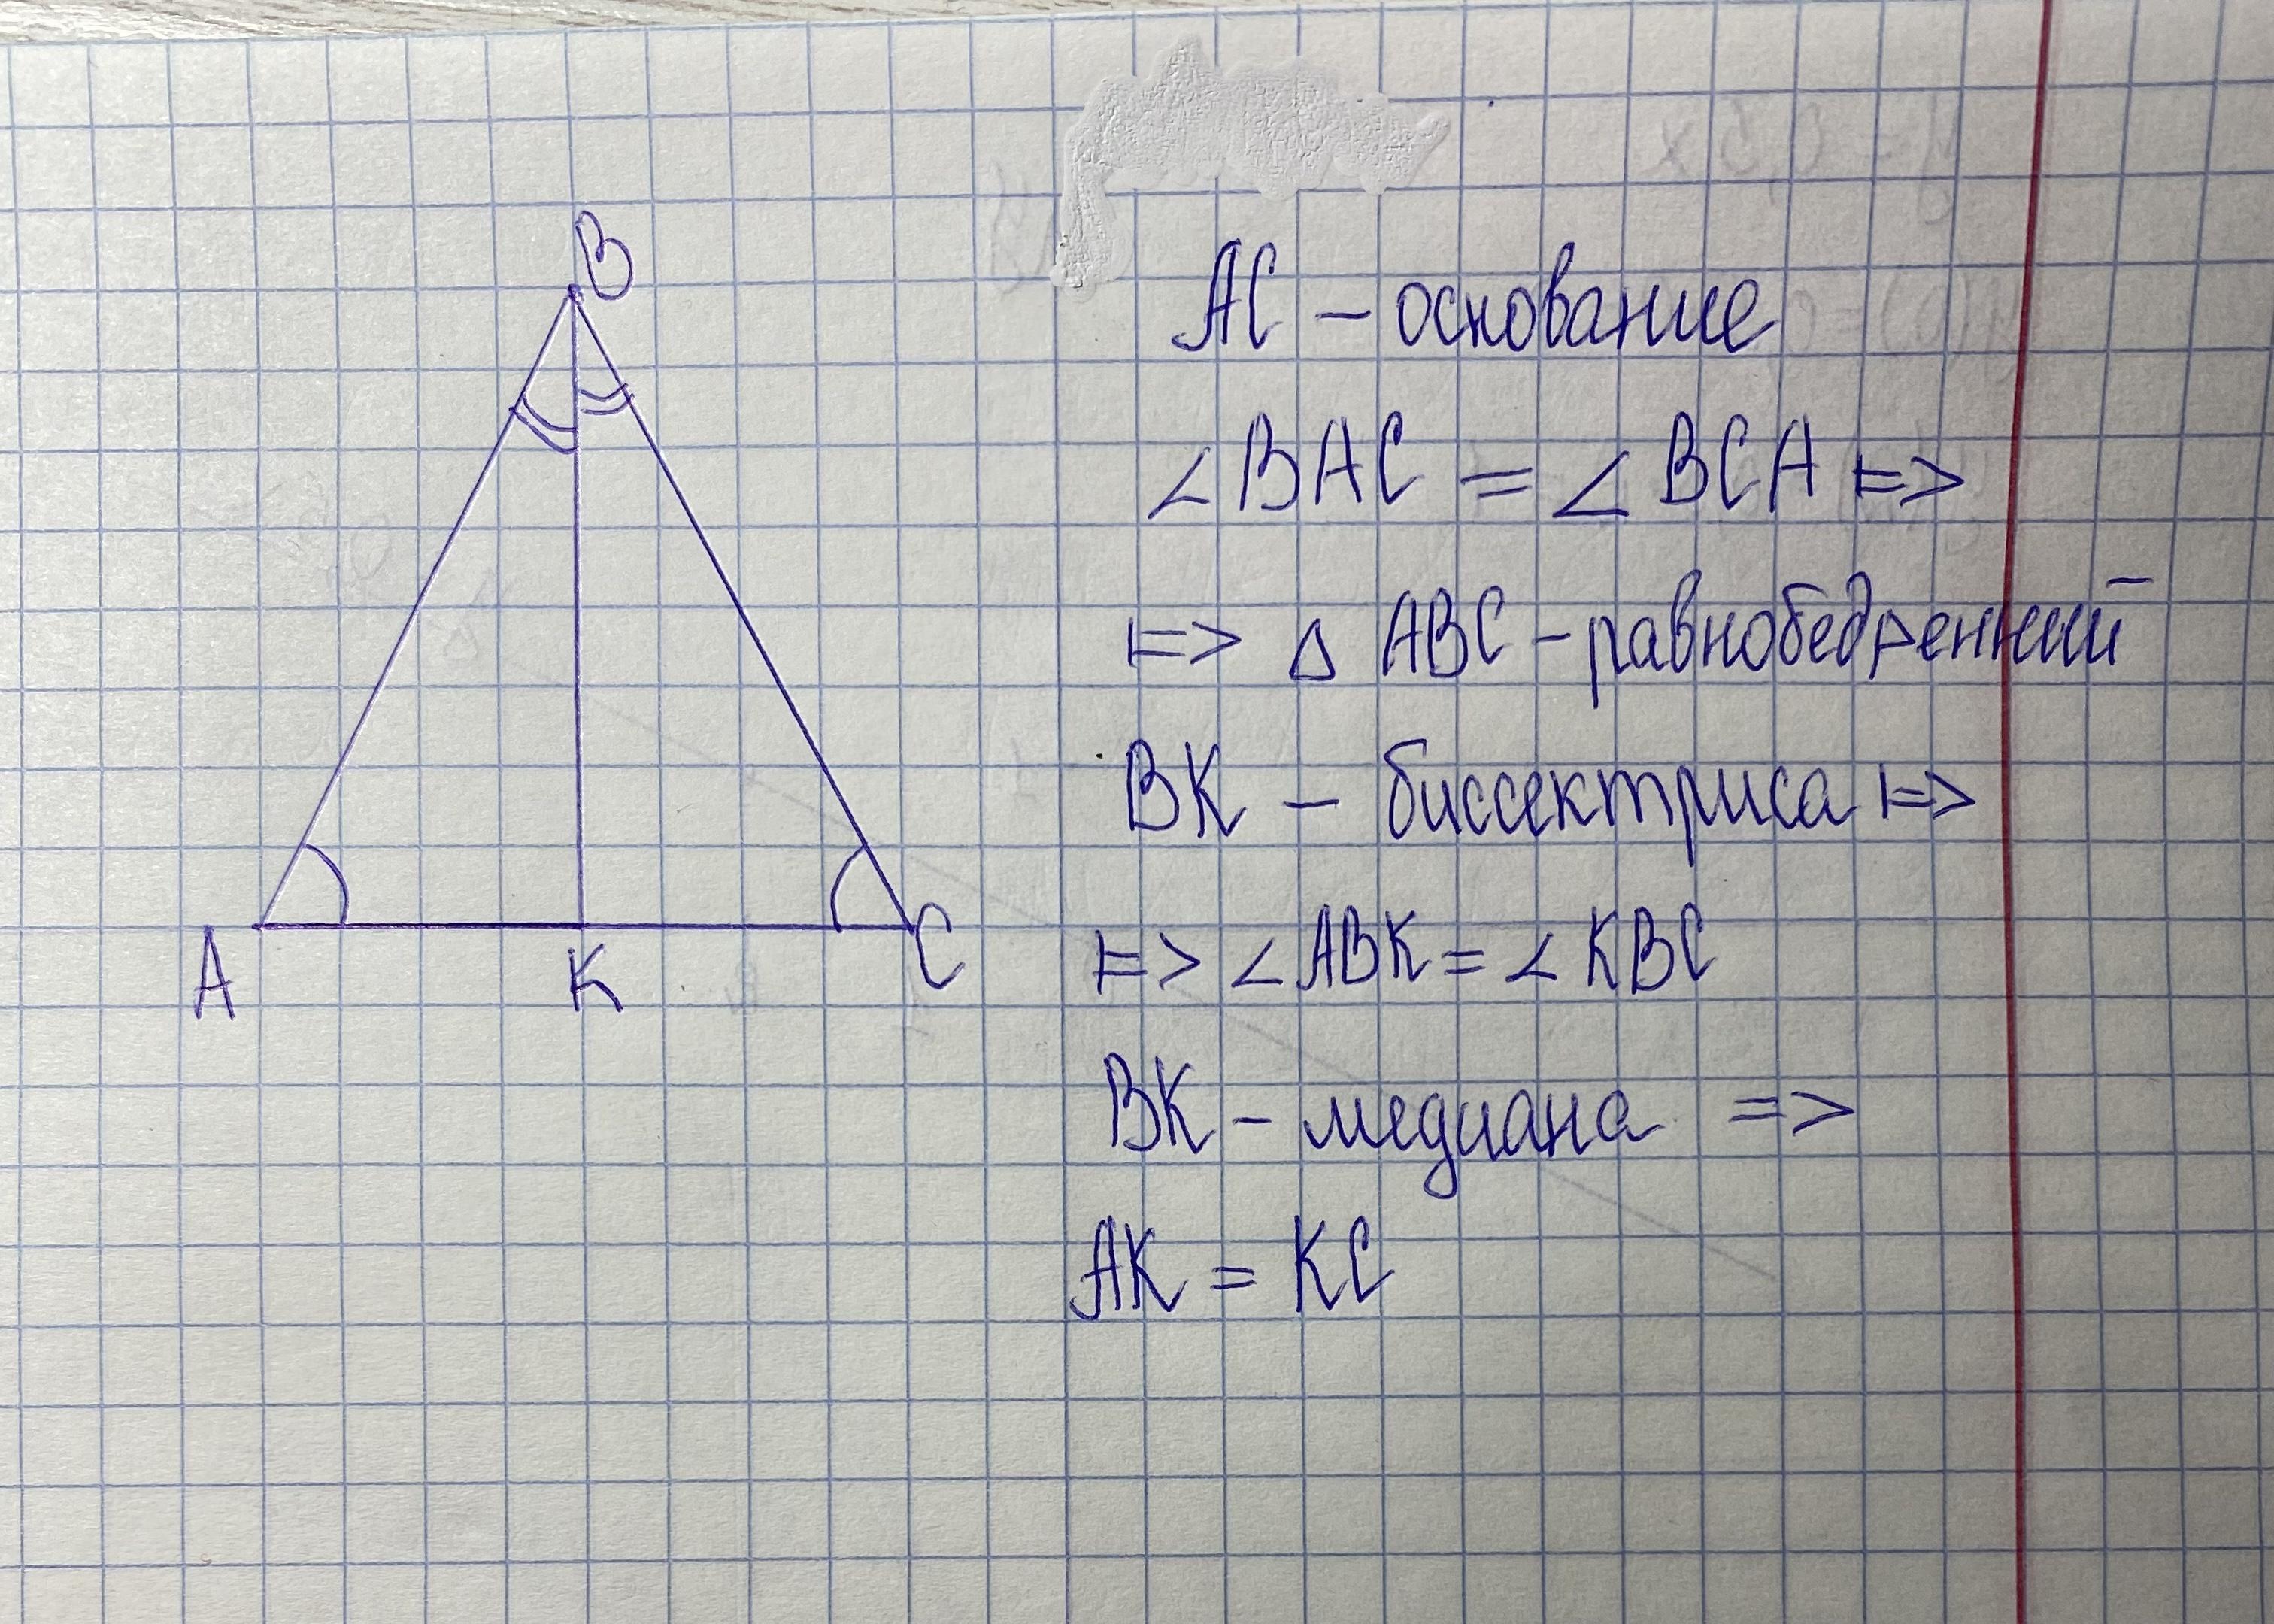 B
A
K
C
AC – основание
∠BAC = ∠BCA =>
=> △ ABC – равнобедренный
BK – биссектриса =>
=> ∠ABK = ∠KBC
BK – медиана =>
AK = KC